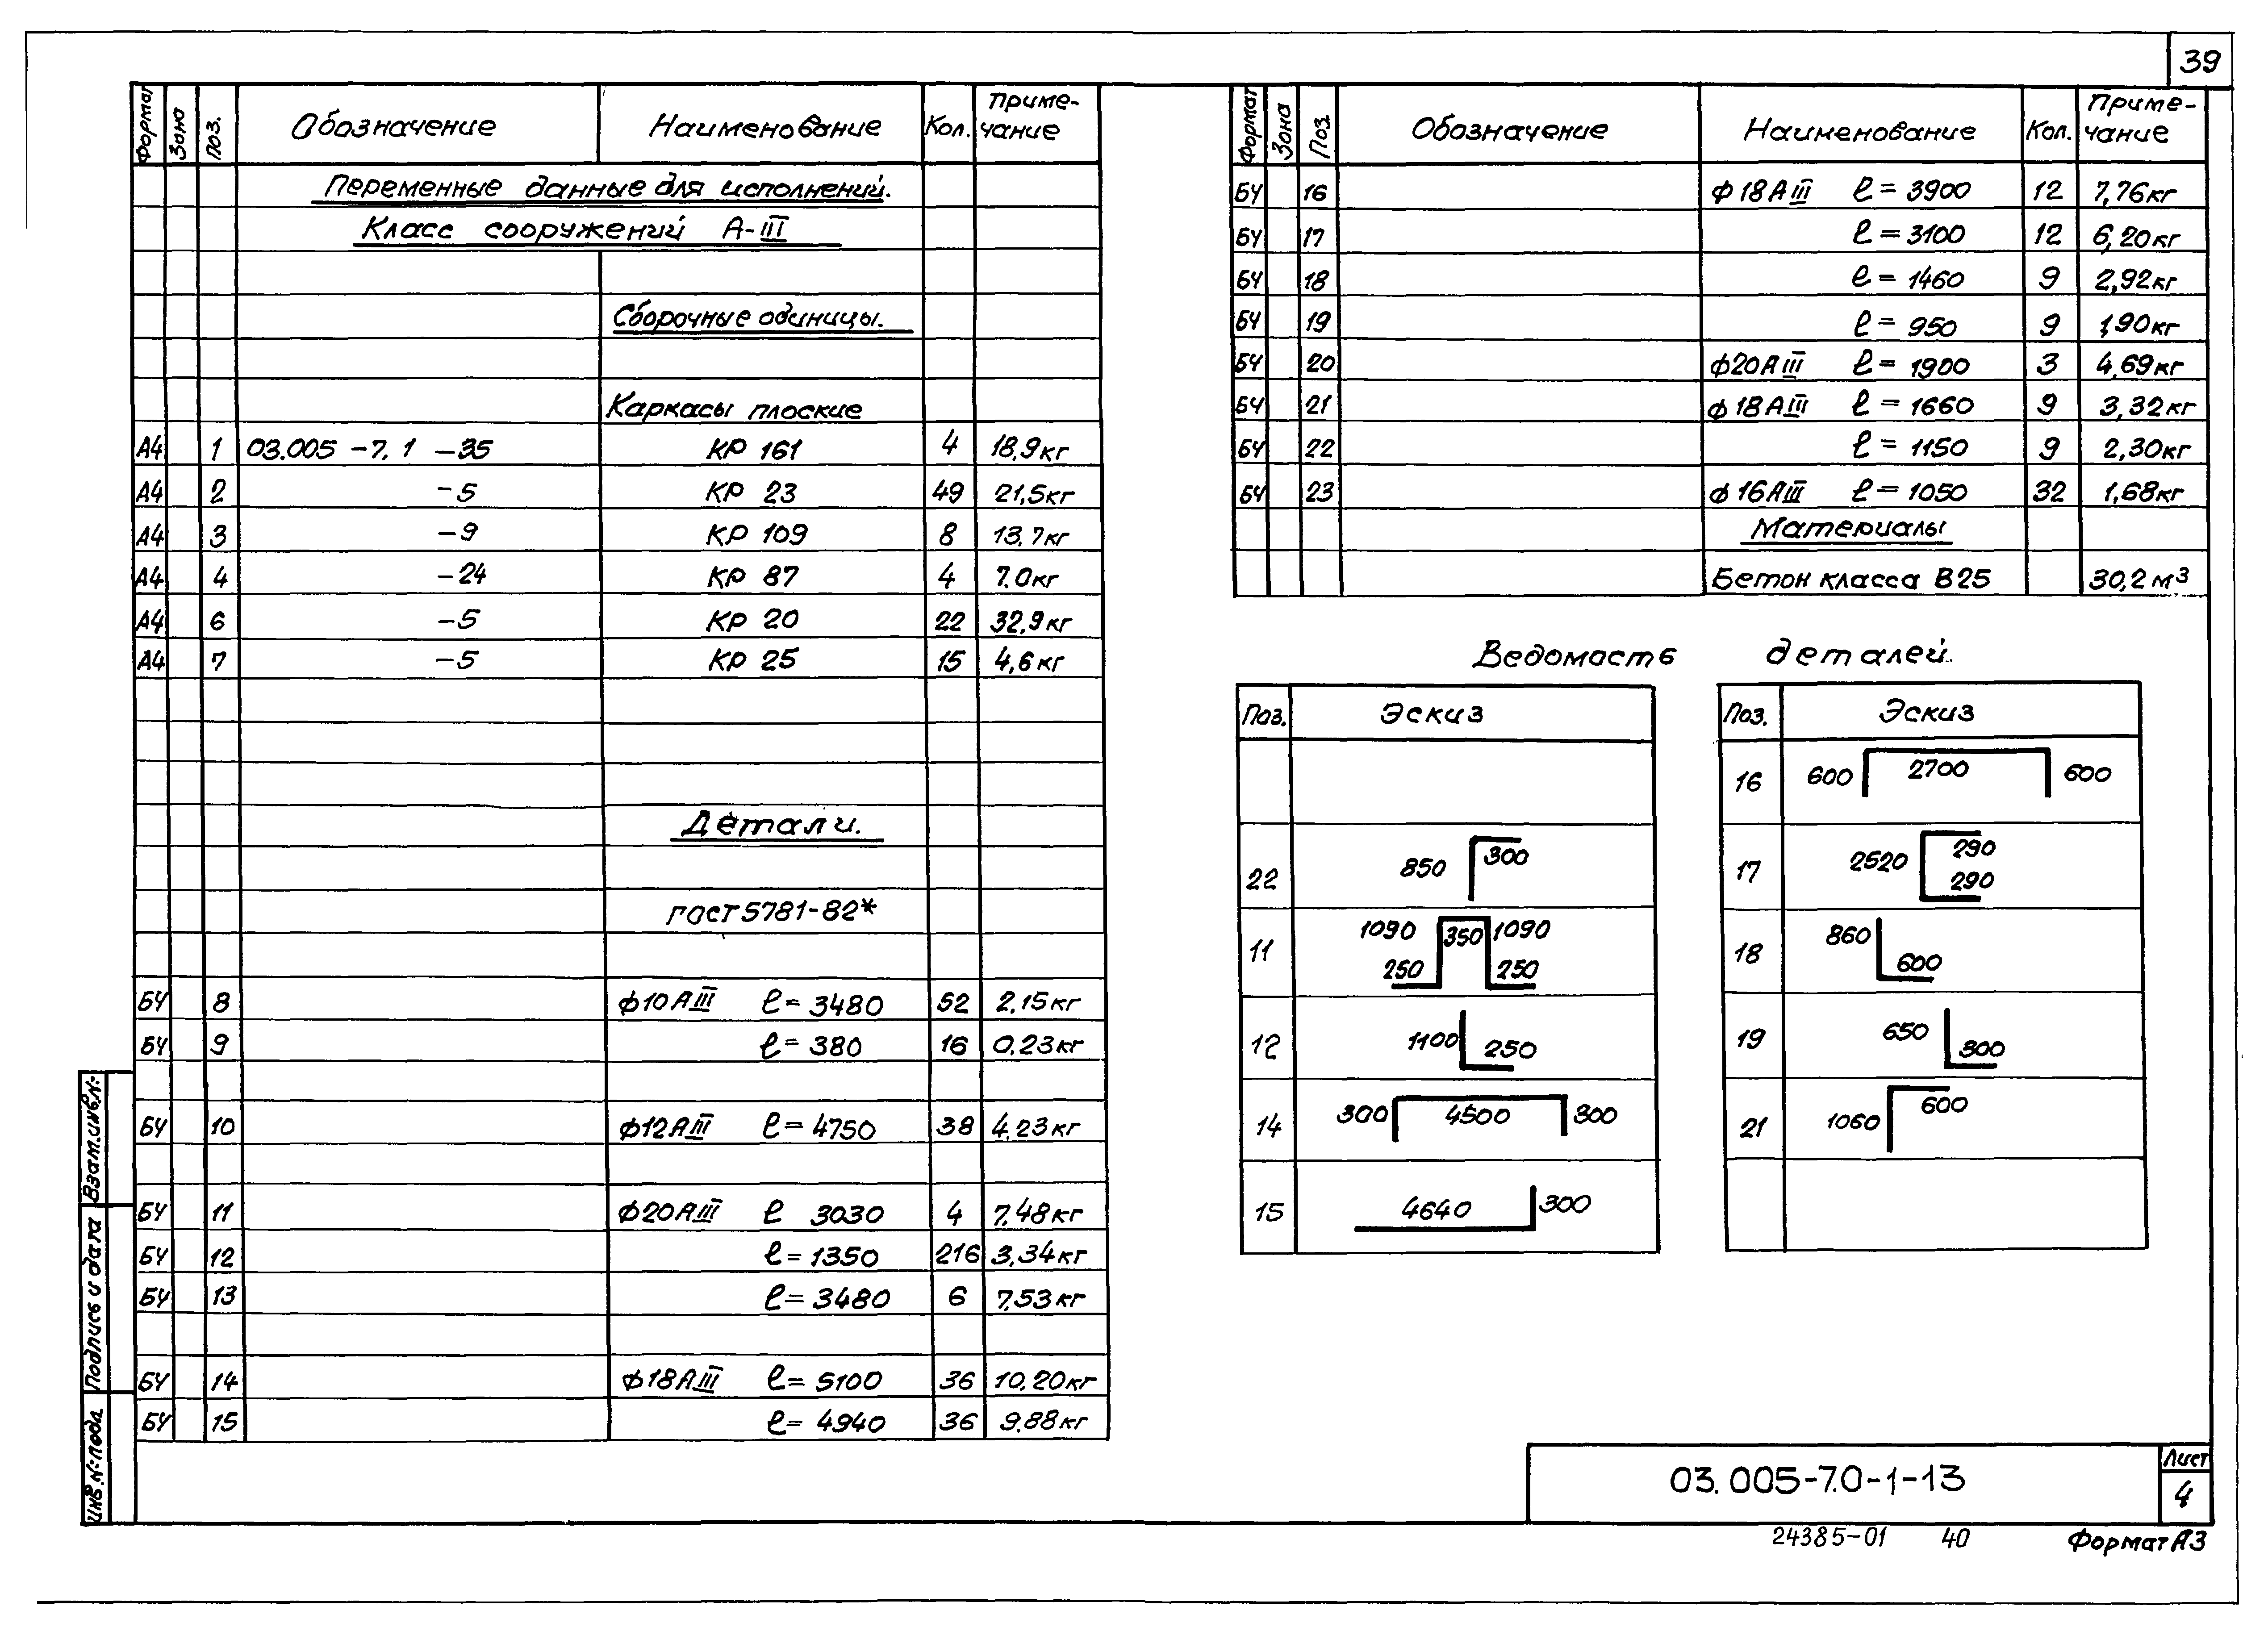 39
Формат Зона Поз. Обозначение Наименование Кол. Приме-чание
Переменные данные для исполнений.
Класс сооружений А-III
Сборочные единицы.
Каркасы плоские
А4 1 03.005-7.1-35 КР 161 4 18,9кг
А4 2 -5 КР 23 49 21,5кг
А4 3 -9 КР 109 8 13,7кг
А4 4 -24 КР 87 4 7.0кг
А4 6 -5 КР 20 22 32,9кг
А4 7 -5 КР 25 15 4,6кг
Детали.
ГОСТ 5781-82*
БЧ 8 ф10АIII ℓ=3480 52 2,15кг
БЧ 9 ℓ=380 16 0,23кг
БЧ 10 ф12АIII ℓ=4750 38 4,23кг
БЧ 11 ф20АIII ℓ 3030 4 7,48кг
БЧ 12 ℓ=1350 216 3,34кг
БЧ 13 ℓ=3480 6 7,53кг
БЧ 14 ф18АIII ℓ=5100 36 10,20кг
БЧ 15 ℓ=4940 36 9.88кг
Формат Зона Поз Обозначение Наименование Кол. Приме-чание
БЧ 16 ф18АIII ℓ=3900 12 7,76кг
БЧ 17 ℓ=3100 12 6,20кг
БЧ 18 ℓ=1460 9 2,92кг
БЧ 19 ℓ=950 9 1,90кг
БЧ 20 ф20АIII ℓ=1900 3 4,69кг
БЧ 21 ф18АIII ℓ=1660 9 3,32кг
БЧ 22 ℓ=1150 9 2,30кг
БЧ 23 ф16АIII ℓ=1050 32 1,68кг
Материалы
Бетон класса В25 30,2м³
Ведомость деталей.
Поз. Эскиз
22 850 300
11 1090 350 1090 250 250
12 1100 250
14 300 4500 300
15 4640 300
Поз. Эскиз
16 600 2700 600
17 2520 290 290
18 860 600
19 650 300
21 1060 600
Взам.инв.№
Подпись и дата
Инв.№ подл
03.005-7.0-1-13
Лист
4
24385-01 40 Формат А3